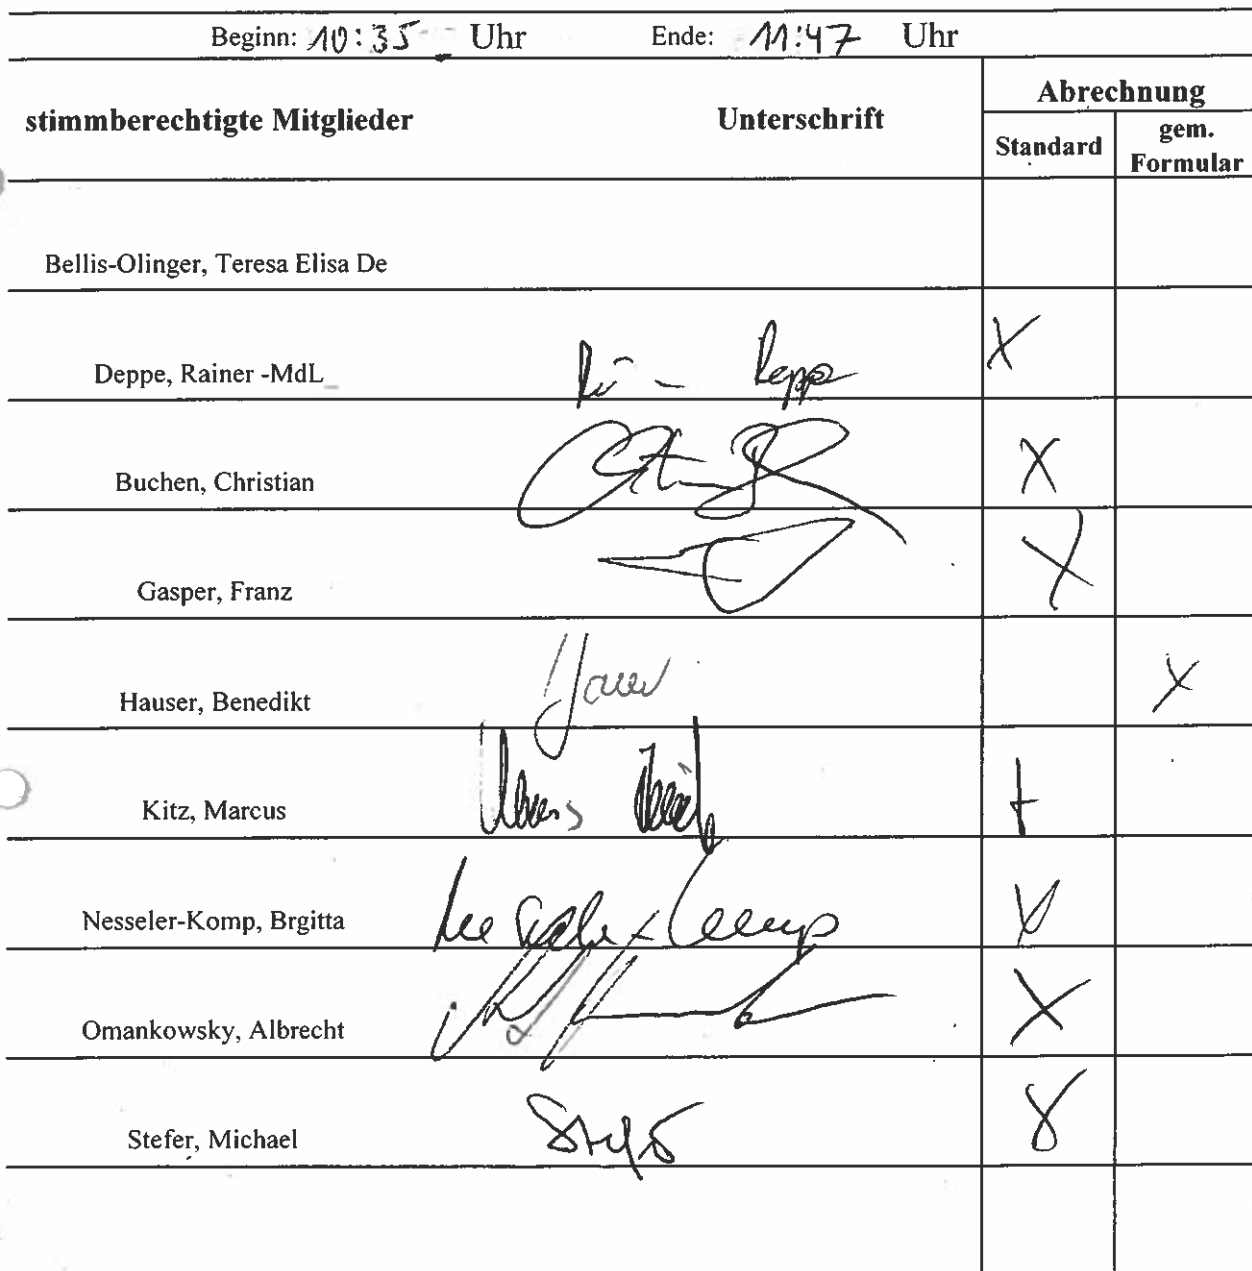 Beginn: 10:35 Uhr Ende: 11:47 Uhr
stimmberechtigte Mitglieder Unterschrift Abrechnung
Standard gem. Formular
Bellis-Olinger, Teresa Elisa De
Deppe, Rainer -MdL Deppe X
Buchen, Christian X
Gasper, Franz X
Hauser, Benedikt X
Kitz, Marcus
Nesseler-Komp, Brgitta X
Omankowsky, Albrecht X
Stefer, Michael X